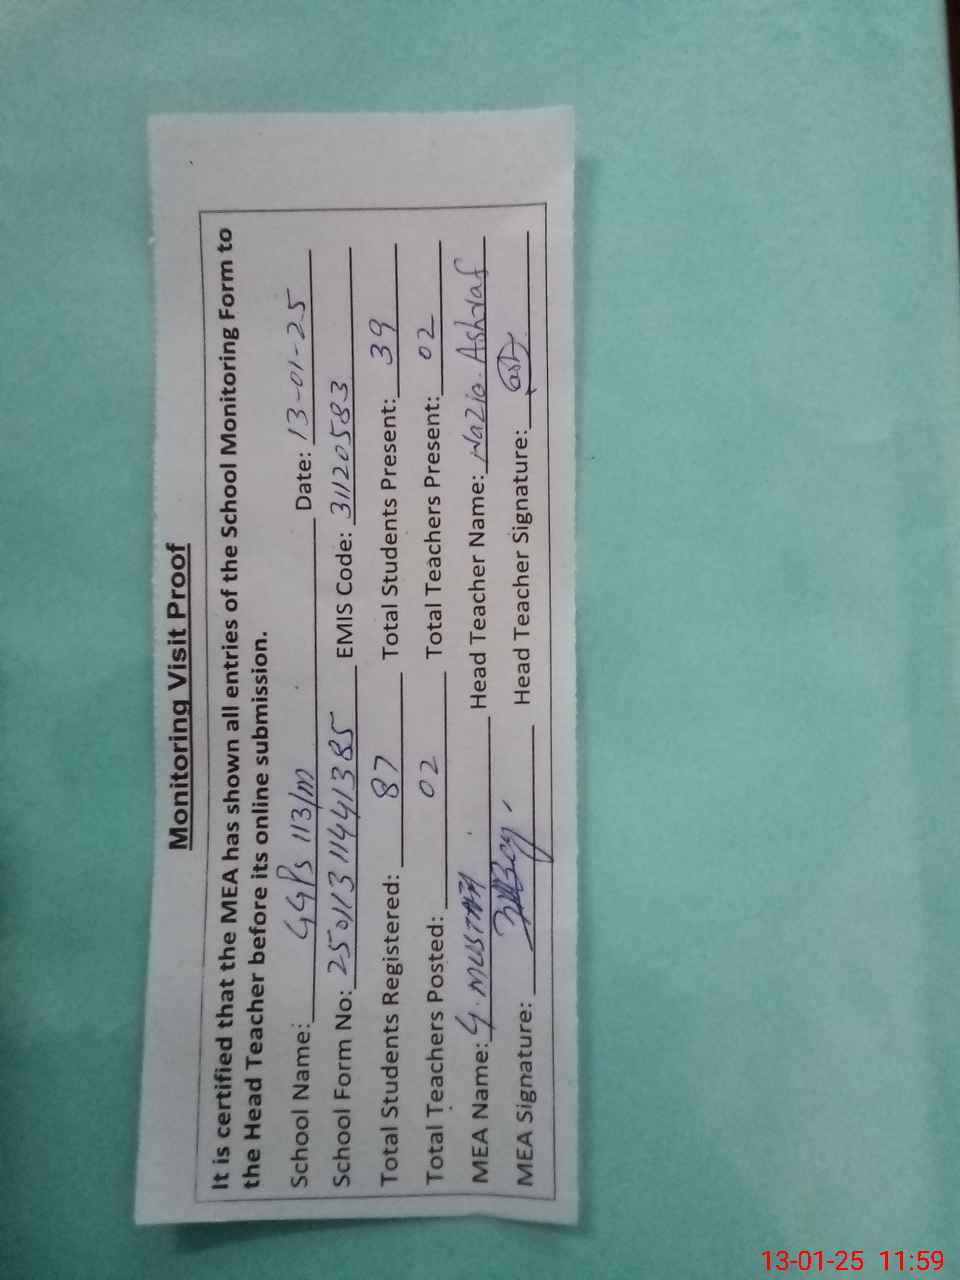 Monitoring Visit Proof
It is certified that the MEA has shown all entries of the School Monitoring Form to
the Head Teacher before its online submission.
School Name: GGPS 113/m Date: 13-01-25
School Form No: 25011311441385 EMIS Code: 31120583
Total Students Registered: 87 Total Students Present: 39
Total Teachers Posted: 02 Total Teachers Present: 02
MEA Name: G. MUSTAFA Head Teacher Name: Nazia Ashraf
MEA Signature: Head Teacher Signature:
13-01-25 11:59